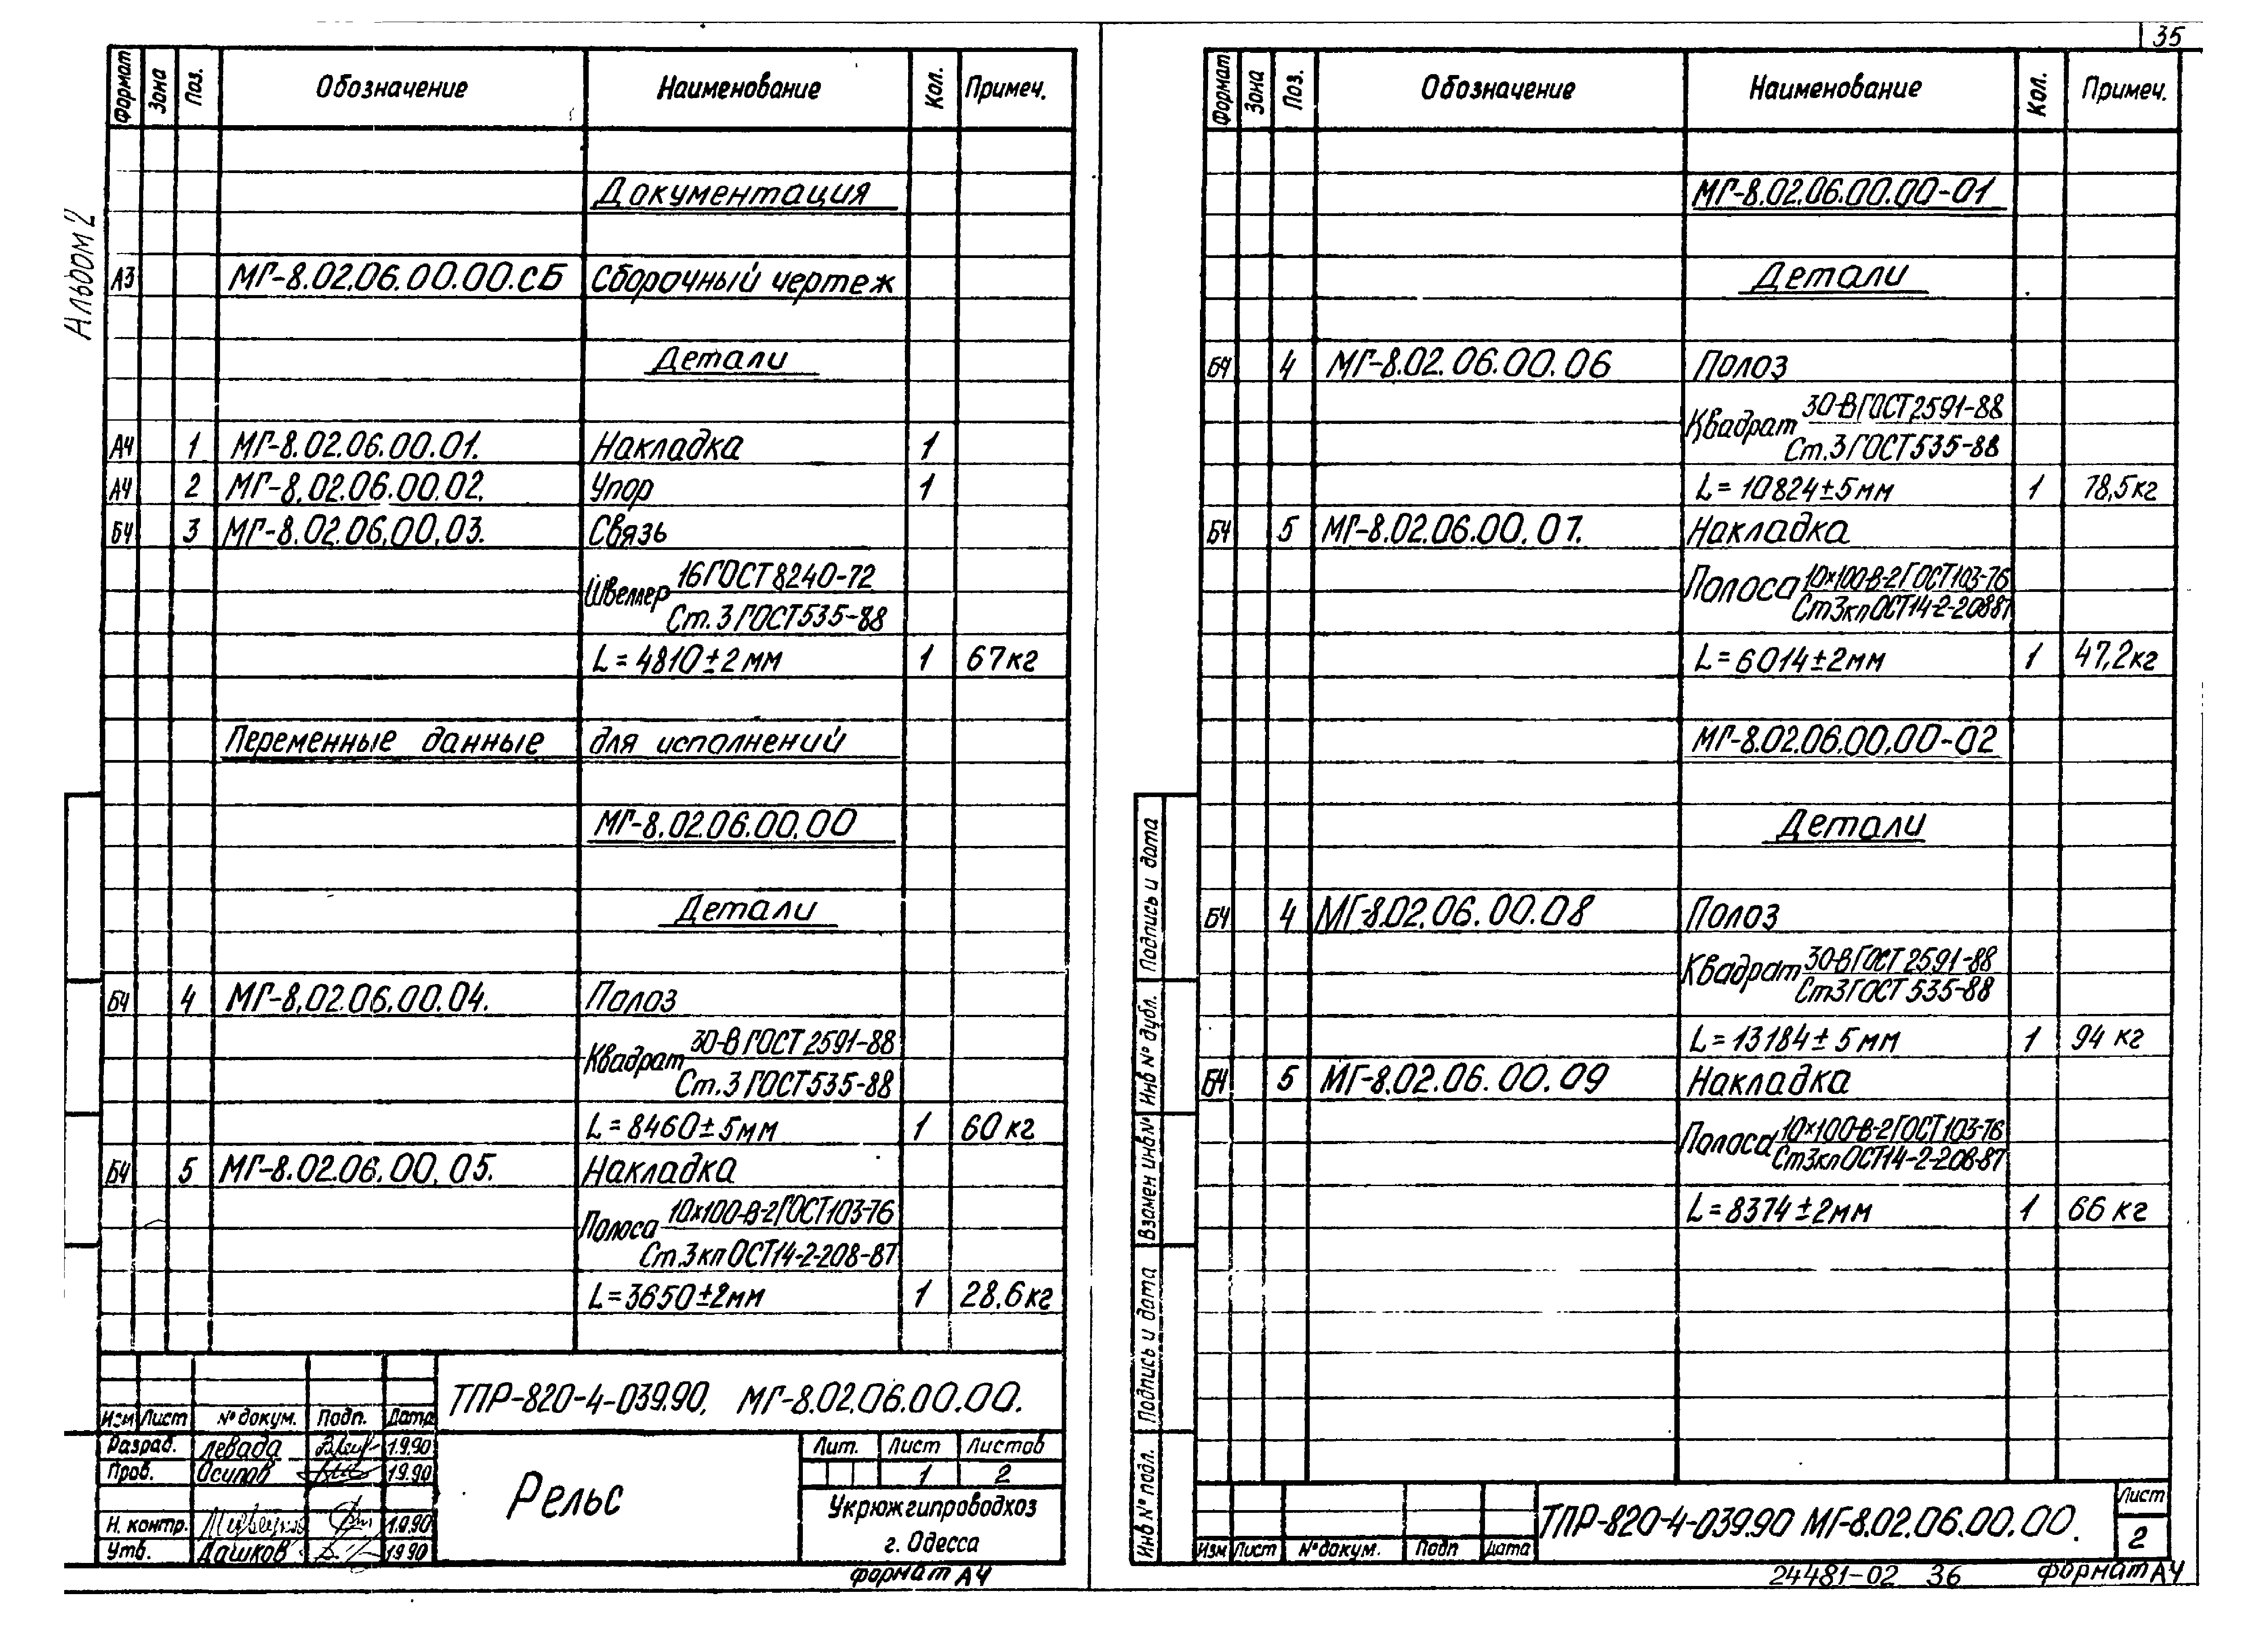 35
Альбом 2
Формат Зона Поз. Обозначение Наименование Кол. Примеч.
Документация
А3 МГ-8.02.06.00.00.СБ Сборочный чертеж
Детали
А4 1 МГ-8.02.06.00.01. Накладка 1
А4 2 МГ-8.02.06.00.02. Упор 1
БЧ 3 МГ-8.02.06.00.03. Связь
Швеллер 16 ГОСТ 8240-72
Ст.3 ГОСТ 535-88
L=4810±2мм 1 67кг
Переменные данные для исполнений
МГ-8.02.06.00.00
Детали
БЧ 4 МГ-8.02.06.00.04. Полоз
Квадрат 30-В ГОСТ 2591-88
Ст.3 ГОСТ 535-88
L=8460±5мм 1 60кг
БЧ 5 МГ-8.02.06.00.05. Накладка
Полоса 10×100-В-2 ГОСТ 103-76
Ст.3кп ОСТ 14-2-208-87
L=3650±2мм 1 28,6кг
ТПР-820-4-039.90. МГ-8.02.06.00.00.
Изм Лист № докум. Подп. Дата
Разраб. Левада 1.9.90
Пров. Осипов 1.9.90
Н. контр. 1.9.90
Утв. Дашков 1990
Рельс
Лит. Лист Листов
1 2
Укрюжгипроводхоз
г. Одесса
формат А4
Формат Зона Поз. Обозначение Наименование Кол. Примеч.
МГ-8.02.06.00.00-01
Детали
БЧ 4 МГ-8.02.06.00.06 Полоз
Квадрат 30-В ГОСТ 2591-88
Ст.3 ГОСТ 535-88
L=10824±5мм 1 78,5кг
БЧ 5 МГ-8.02.06.00.07. Накладка
Полоса 10×100-В-2 ГОСТ 103-76
Ст3кп ОСТ 14-2-20887
L=6014±2мм 1 47,2кг
МГ-8.02.06.00.00-02
Детали
БЧ 4 МГ-8.02.06.00.08 Полоз
Квадрат 30-В ГОСТ 2591-88
Ст3 ГОСТ 535-88
L=13184±5мм 1 94 кг
БЧ 5 МГ-8.02.06.00.09 Накладка
Полоса 10×100-В-2 ГОСТ 103-76
Ст3кп ОСТ 14-2-208-87
L=8374±2мм 1 66 кг
Подпись и дата
Инв № дубл.
Взамен инв №
Подпись и дата
Инв № подл.
Изм Лист № докум. Подп Дата
ТПР-820-4-039.90 МГ-8.02.06.00.00.
Лист
2
24481-02 36 формат А4